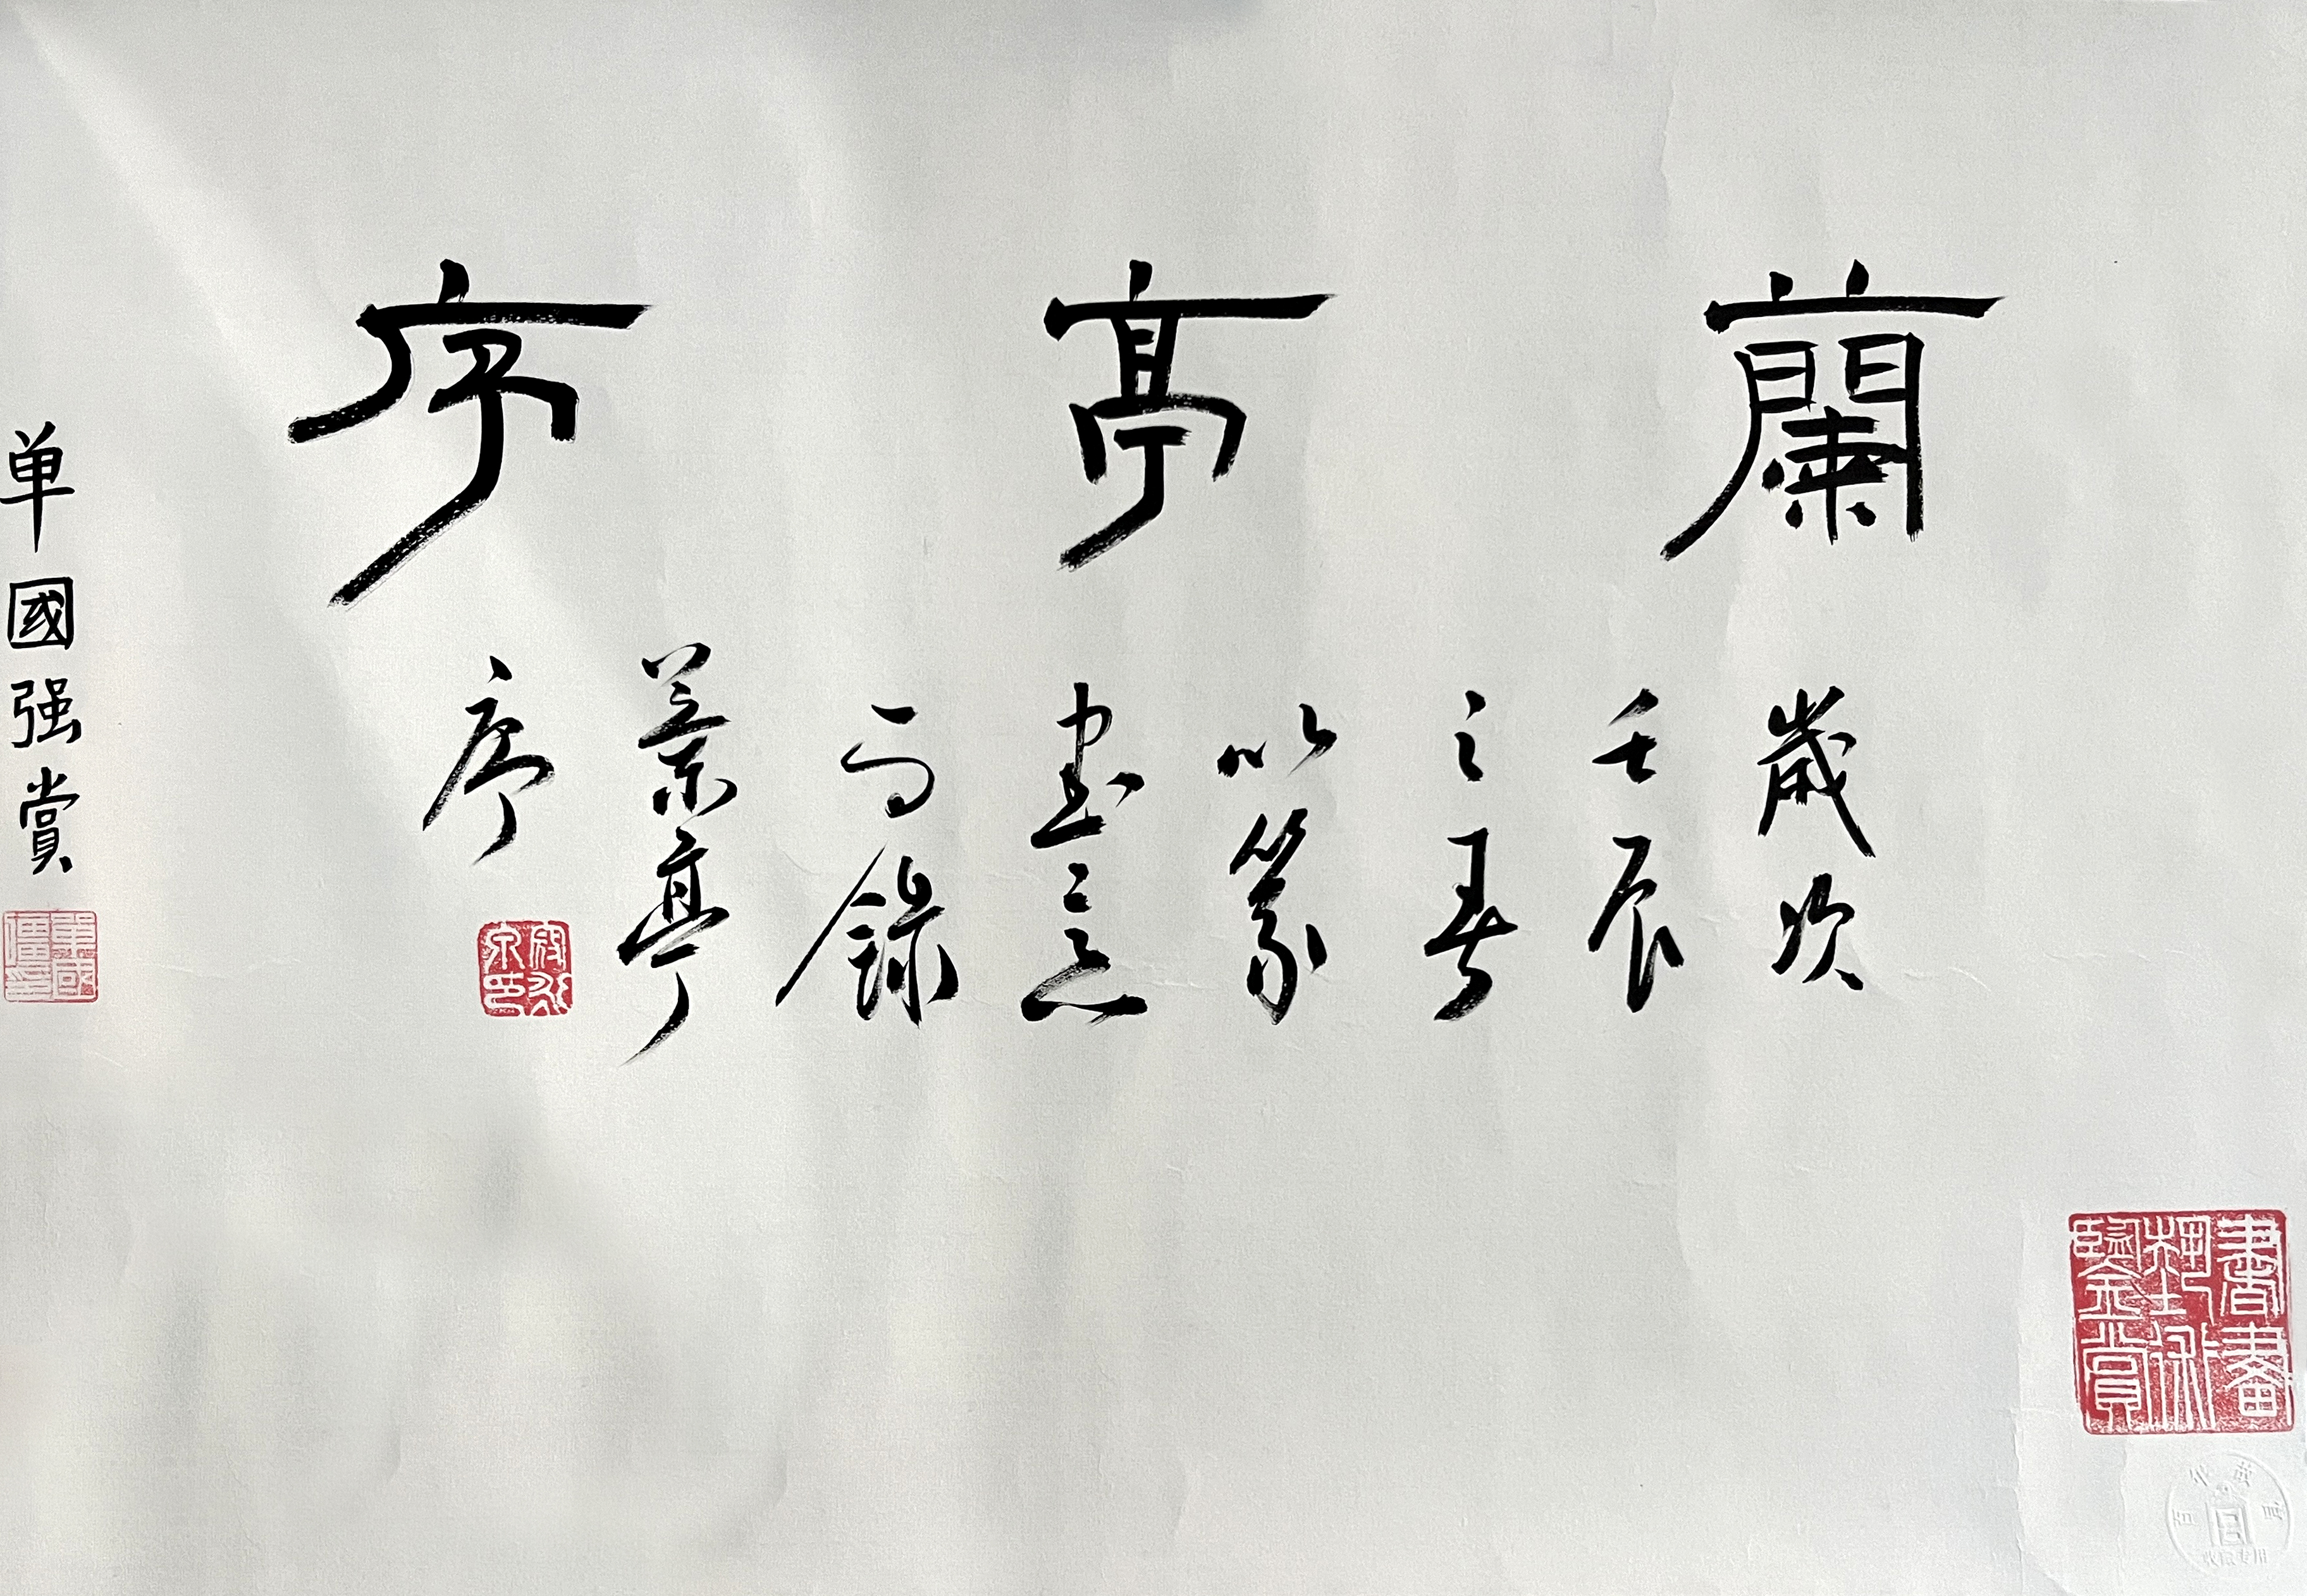 蘭亭序
歲次
壬辰
之春
以篆
書意
而錄
蘭亭
序
单國强賞
書畫
鑒賞